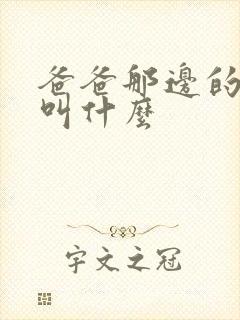 爸爸那邊的
叫什麼
宇文之冠